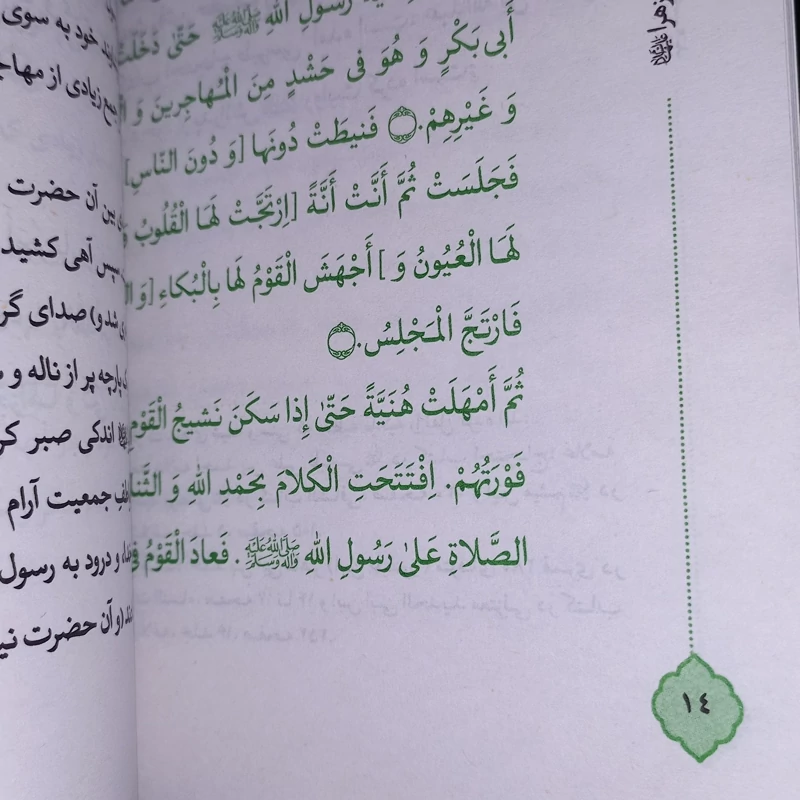 رَسُولِ اللهِ ﷺ حَتّىٰ دَخَلَتْ
أَبی بَکْرٍ وَ هُوَ فی حَشْدٍ مِنَ الْمُهاجِرینَ وَ
وَ غَیْرِهِمْ. فَنیطَتْ دُونَها [وَ دُونَ النّاسِ]
فَجَلَسَتْ ثُمَّ أَنَّتْ أَنَّةً [اِرْتَجَّتْ لَهَا الْقُلُوبُ وَ
لَهَا الْعُیُونُ وَ] أَجْهَشَ الْقَوْمُ لَها بِالْبُکاءِ [وَ
فَارْتَجَّ الْمَجْلِسُ.
ثُمَّ أَمْهَلَتْ هُنَیَّةً حَتّىٰ إِذا سَکَنَ نَشیجُ الْقَوْمِ
فَوْرَتُهُمْ. اِفْتَتَحَتِ الْکَلامَ بِحَمْدِ اللهِ وَ
الصَّلاةِ عَلىٰ رَسُولِ اللهِ ﷺ. فَعادَ الْقَوْمُ
١٤
خود به سوی
جمع زیادی از
بین آن حضرت
سپس آهی کشید
شد و) صدای
پارچه پر از ناله و
اندکی صبر
جمعیت آرام
و درود به رسول
(و آن حضرت